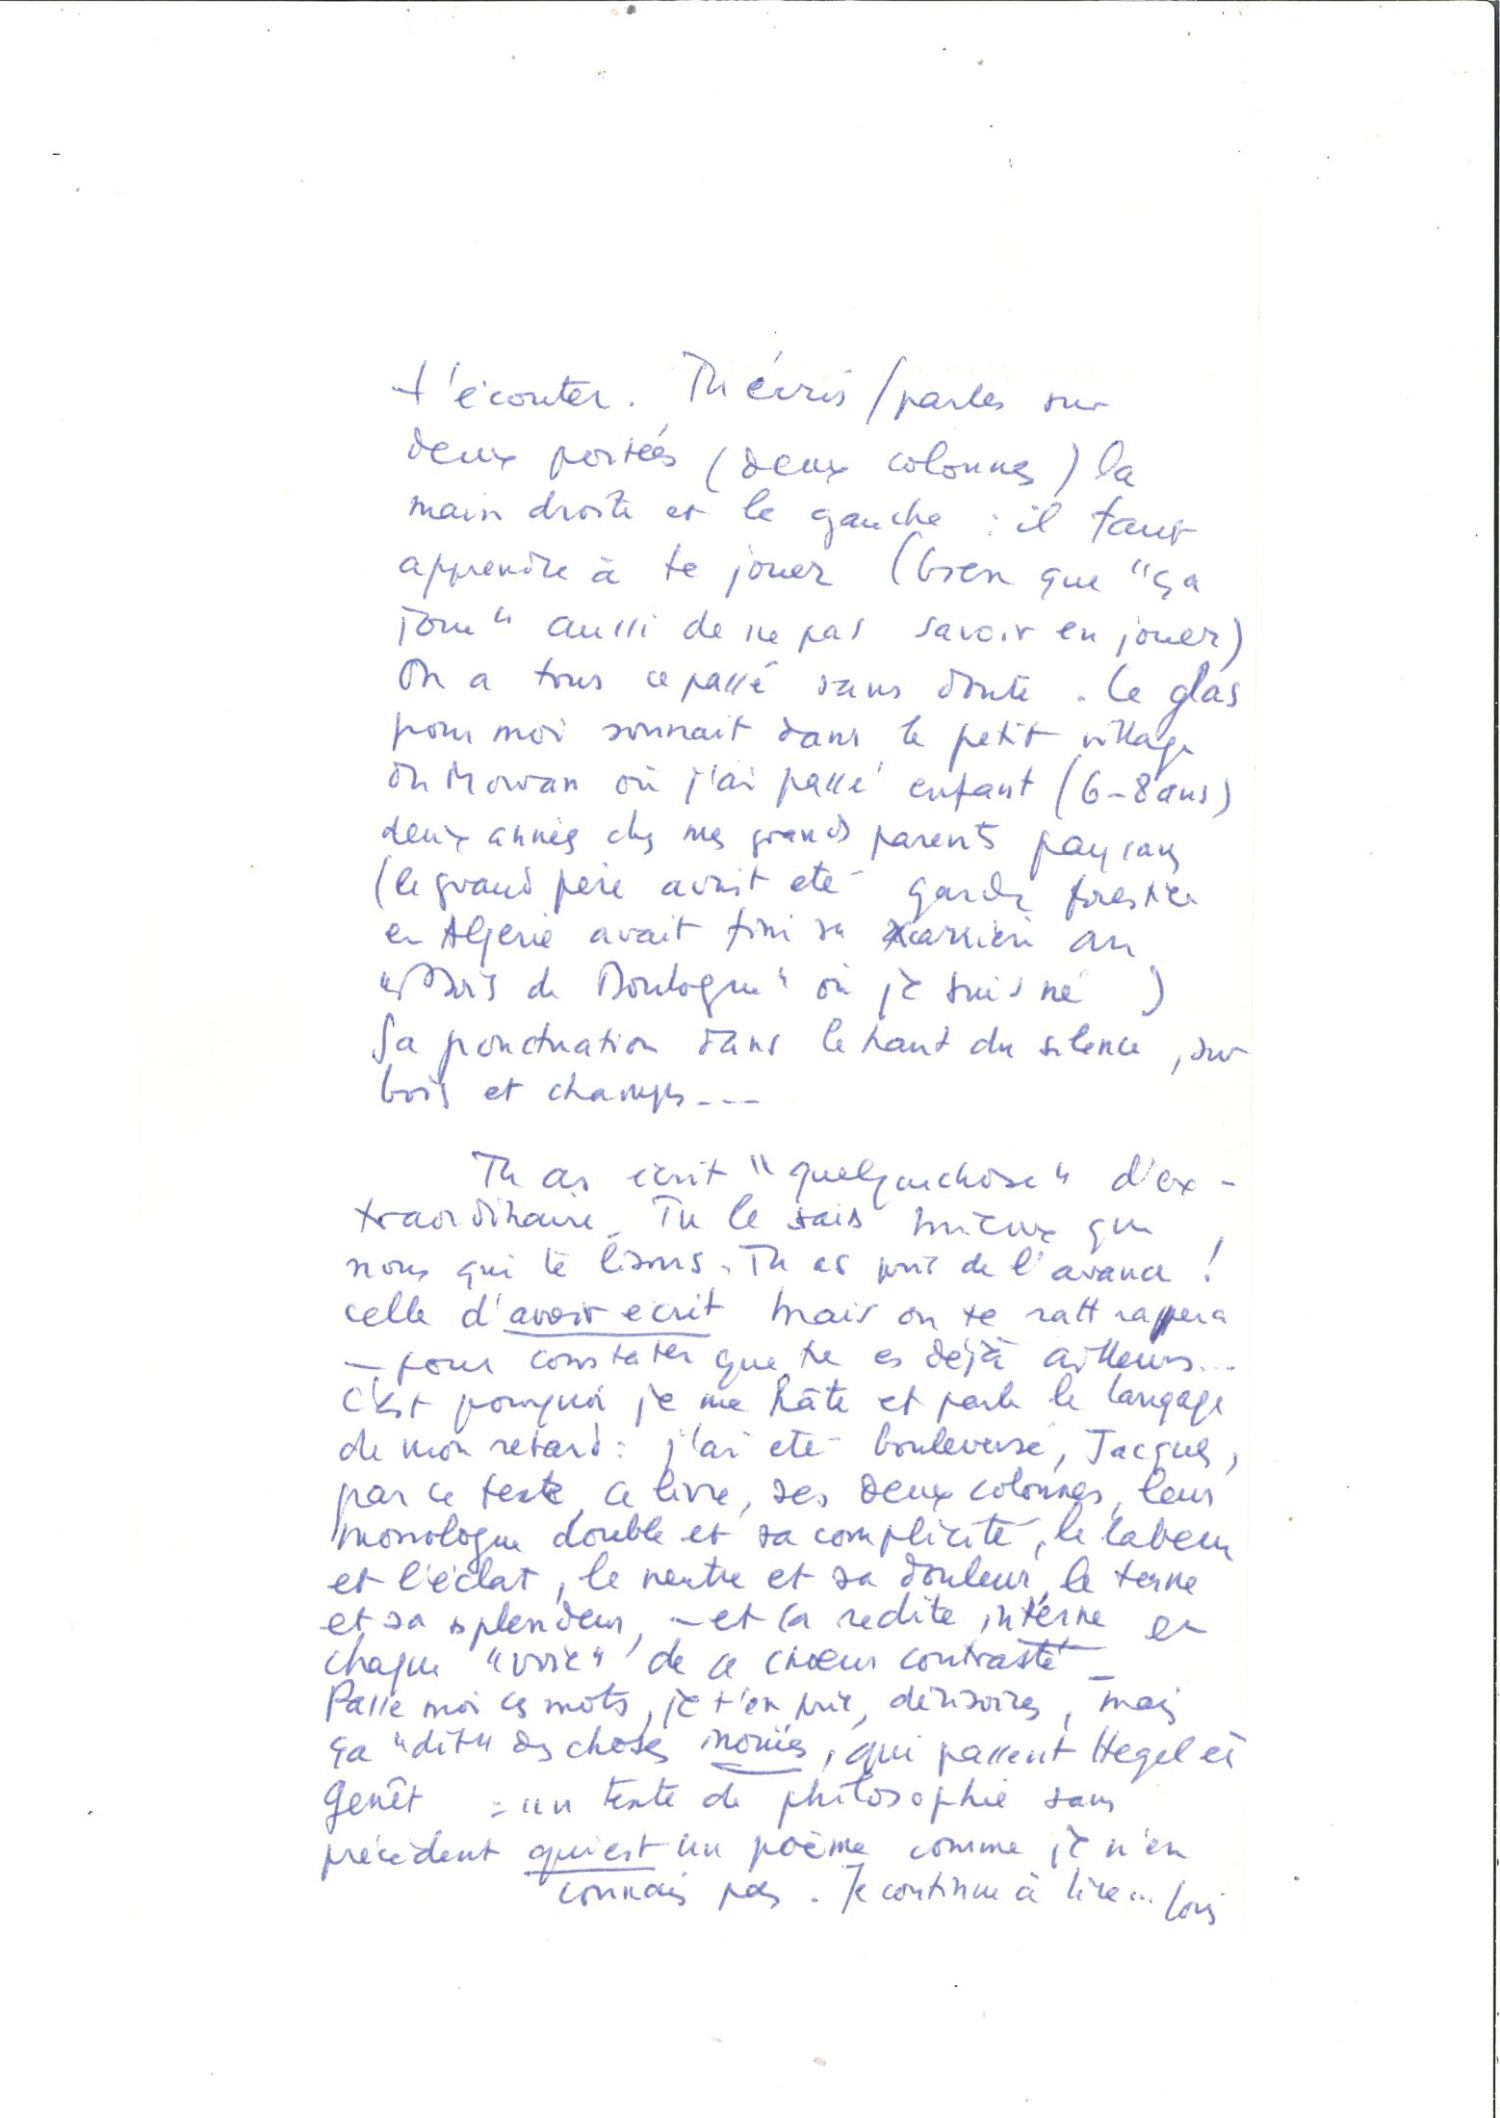 t'écouter. Tu écris/parles sur
deux portées (deux colonnes) la
main droite et la gauche : il faut
apprendre à te jouer (bien que "ça
joue" aussi de ne pas savoir en jouer)
On a tous ce passé sans doute. Ce glas
pour moi sonnait dans le petit village
du Morvan où j'ai passé enfant (6-8 ans)
deux années chez mes grands parents paysans
(le grand père avait été garde forestier
en Algérie avait fini sa carrière au
"Bois de Boulogne" où je suis né )
Sa ponctuation dans le haut du silence, sur
bois et champs---
Tu as écrit "quelquechose" d'ex-
traordinaire. Tu le sais mieux que
nous qui te lisons. Tu as pris de l'avance !
celle d'avoir écrit mais on te rattrapera
— pour constater que tu es déjà ailleurs...
C'est pourquoi je me hâte et parle le langage
de mon retard : j'ai été bouleversé, Jacques,
par ce texte, ce livre, ses deux colonnes, leur
monologue double et sa complicité, le labeur
et l'éclat, le neutre et sa douleur, le terne
et sa splendeur, — et la redite interne en
chaque "voix" de ce chœur contrasté —
Passe moi ces mots, je t'en prie, dérisoires, mais
ça "dit" des choses inouïes, qui passent Hegel et
Genêt : un texte de philosophie sans
précédent qui est un poème comme je n'en
connais pas. Je continue à lire...